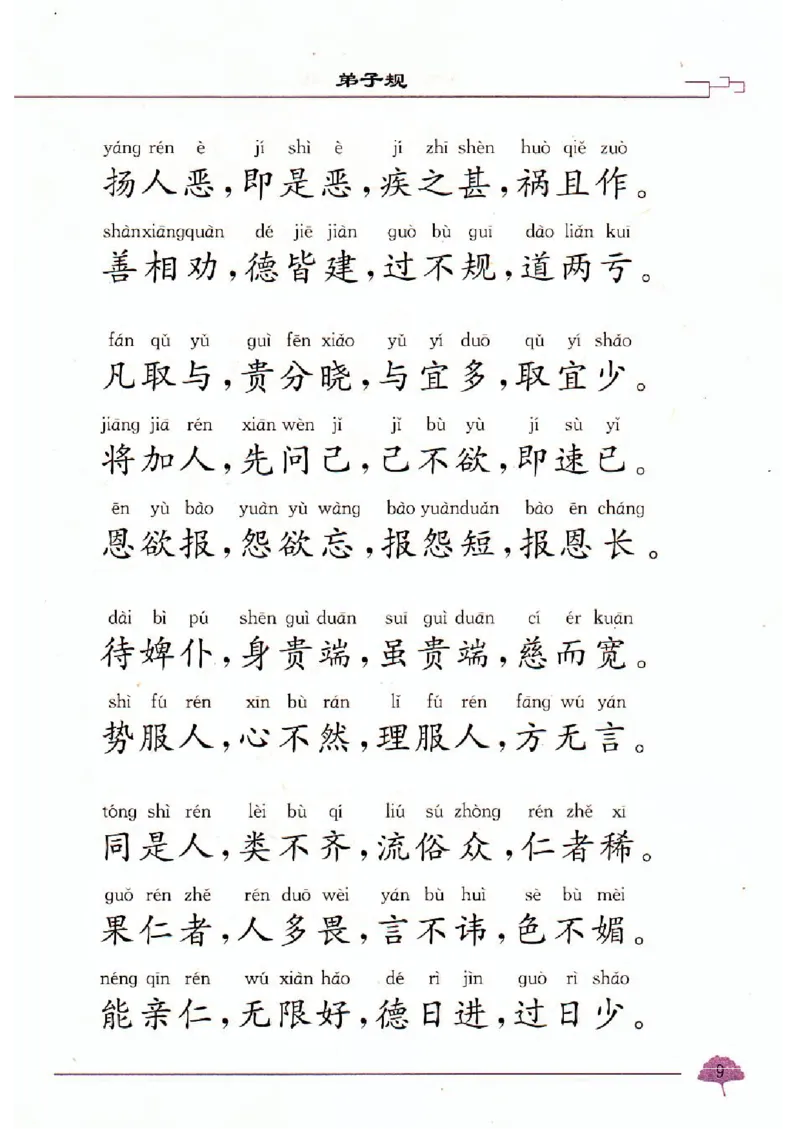 弟子规
yáng rén è jí shì è jí zhī shèn huò qiě zuò
扬人恶，即是恶，疾之甚，祸且作。
shànxiāngquàn dé jiē jiàn guò bù guī dào liǎn kuī
善相劝，德皆建，过不规，道两亏。
fán qǔ yǔ guì fēn xiǎo yǔ yí duō qǔ yí shǎo
凡取与，贵分晓，与宜多，取宜少。
jiāng jiā rén xiān wèn jǐ jǐ bù yù jí sù yǐ
将加人，先问己，己不欲，即速已。
ēn yù bào yuàn yù wàng bào yuànduǎn bào ēn cháng
恩欲报，怨欲忘，报怨短，报恩长。
dài bì pú shēn guì duān suī guì duān cí ér kuān
待婢仆，身贵端，虽贵端，慈而宽。
shì fú rén xīn bù rán lǐ fú rén fāng wú yán
势服人，心不然，理服人，方无言。
tóng shì rén lèi bù qí liú sú zhòng rén zhě xī
同是人，类不齐，流俗众，仁者稀。
guǒ rén zhě rén duō wèi yán bù huì sè bù mèi
果仁者，人多畏，言不讳，色不媚。
néng qīn rén wú xiàn hǎo dé rì jìn guò rì shǎo
能亲仁，无限好，德日进，过日少。
9